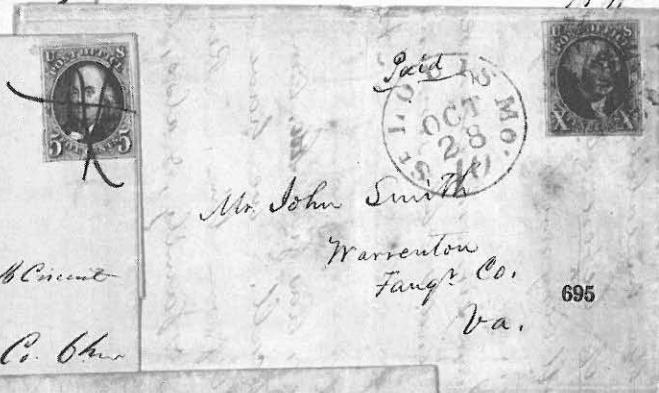 U S
POST OFFICE
5 CENTS 5
Co.
Paid
ST. LOUIS Mo.
OCT
28
10
U S
POST OFFICE
X X
Mr. John Smith
Warrenton
Fauqr. Co.
Va.
695